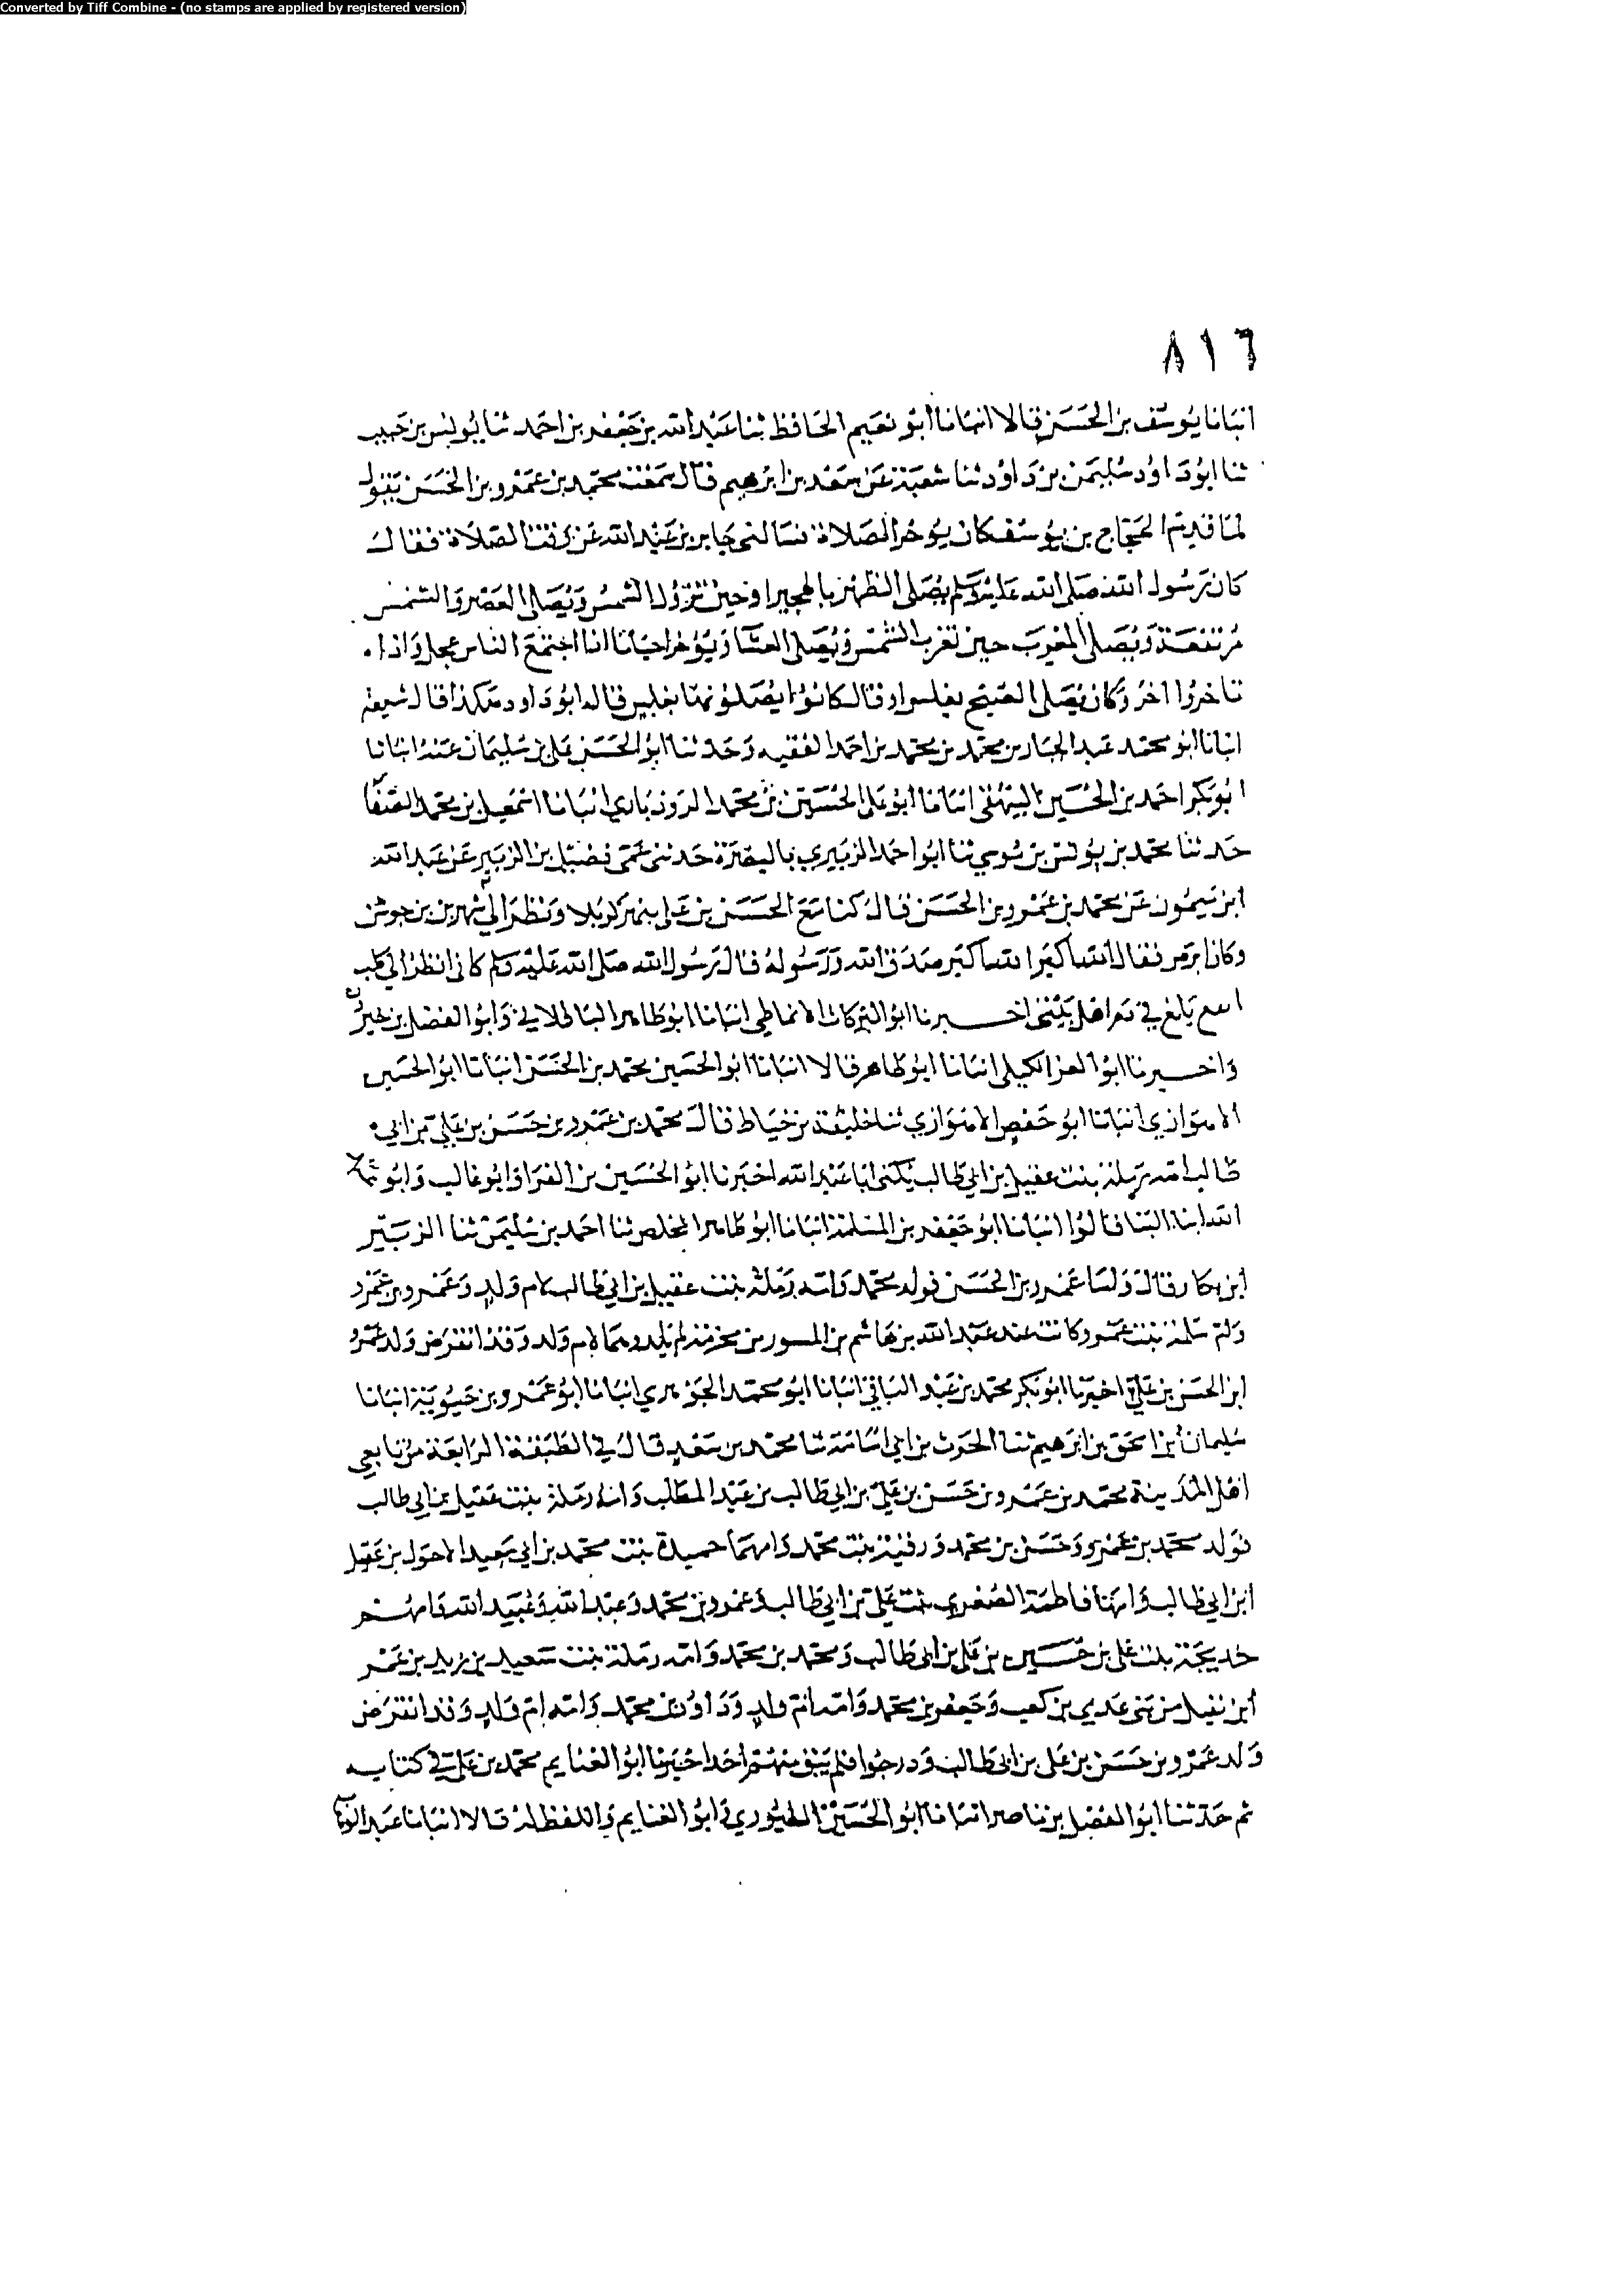 Converted by Tiff Combine - (no stamps are applied by registered version)
٨١٦
انبانا يوسف بن الحسن قالا انبانا أبو نعيم الحافظ ثنا عبد الله بن جعفر بن احمد ثنا يونس بن حبيب
ثنا ابو داود سليمن بن داود ثنا شعبة عن سعد بن ابرهيم قال سمعت محمد بن عمرو بن الحسن يقول
لما قدم الحجاج بن يوسف كان يؤخر الصلاة فسالنى جابر بن عبد الله عن وقت الصلاة فقال
كان رسول الله صلى الله عليه وسلم يصلى الظهر بالهجير او حين تزول الشمس ويصلى العصر والشمس
مرتفعة ويصلى المغرب حين تغرب الشمس ويصلى العشا ويؤخر احيانا اذا اجتمع الناس عجل واذا
تاخروا اخر وكان يصلى الصبح بغلس او قال كانوا يصلونها بغلس قال ابو داود هكذا قال شعبة
انبانا ابو محمد عبد الجبار بن محمد بن محمد بن احمد الفقيه وحدثنا ابو الحسن على بن سليمان عنه انبانا
ابو بكر احمد بن الحسين البيهقى انبانا ابو على الحسين بن محمد الروذباري انبانا اسمعيل بن محمد الصفا
حدثنا محمد بن يونس بن موسي ثنا ابو احمد الزبيري بالبصرة حدثنى عمى فضيل بن الزبير عن عبد الله
ابن ميمون عن محمد بن عمرو بن الحسن قال كنا مع الحسين بن على بنهر كربلا ونظر الي شمر بن جوشن
وكان ابرص فقال الله اكبر الله اكبر صدق الله ورسوله قال رسول الله صلى الله عليه وسلم كاني انظر الي كلب
يلغ في دم اهل بيتى اخبرنا ابو البركات الانماطي انبانا ابو طاهر الباقلاني وابو الفضل بن خيرون
واخبرنا ابو العز الكيلى انبانا ابو طاهر قالا انبانا ابو الحسين محمد بن الحسن انبانا ابو الحسين
الاهوازي انبانا ابو حفص الاهوازي ثنا خليفة بن خياط قال محمد بن عمرو بن حسن بن علي بن ابي
طالب امه رملة بنت عقيل بن ابي طالب يكنى ابا عبد الله اخبرنا ابو الحسين بن الفرا وابو غالب وابو عبد
الله ابنا البنا قالوا انبانا ابو جعفر بن المسلمة انبانا ابو طاهر المخلص ثنا احمد بن سليمن ثنا الزبير
ابن بكار قال ولد عمرو بن الحسن فولد محمد وامه رملة بنت عقيل بن ابي طالب لام ولد وعمرو بن عمرو
وام سلمة بنت عمرو كانت عند عبد الله بن هاشم بن المسور بن مخرمة لم تلد وهما لام ولد وقد انقرض ولد عمرو
ابن الحسن بن علي اخبرنا ابو بكر محمد بن عبد الباقي انبانا ابو محمد الجوهري انبانا ابو عمرو بن حيويه انبانا
سليمان بن اسحق بن ابرهيم ثنا الحرث بن ابي اسامة ثنا محمد بن سعد قال في الطبقة الرابعة من تابعي
اهل المدينة محمد بن عمرو بن حسن بن علي بن ابي طالب بن عبد المطلب وامه رملة بنت عقيل بن ابي طالب
فولد محمد بن عمرو وحسن بن محمد ورقية بنت محمد وامهما حميدة بنت محمد بن ابي سعيد الاحول بن عقيل
ابن ابي طالب وامها فاطمة الصغري بنت علي بن ابي طالب وعمرو بن محمد وعبد الله وعبيد الله وامهم
خديجة بنت على بن حسين بن على بن ابي طالب ومحمد بن محمد وامه رملة بنت سعيد بن زيد بن عمر
ابن نفيل من بني عدي بن كعب وجعفر بن محمد وامه ام ولد وداود بن محمد وامه ام ولد وقد انقرض
ولد عمرو بن حسن بن على بن ابي طالب ودرجوا فلم يبق منهم احد اخبرنا ابو الغنايم محمد بن علي في كتابه
ثم حدثنا ابو الفضل بن ناصر انبانا ابو الحسين الطيوري وابو الغنايم واللفظ له قالا انبانا عبد الوها